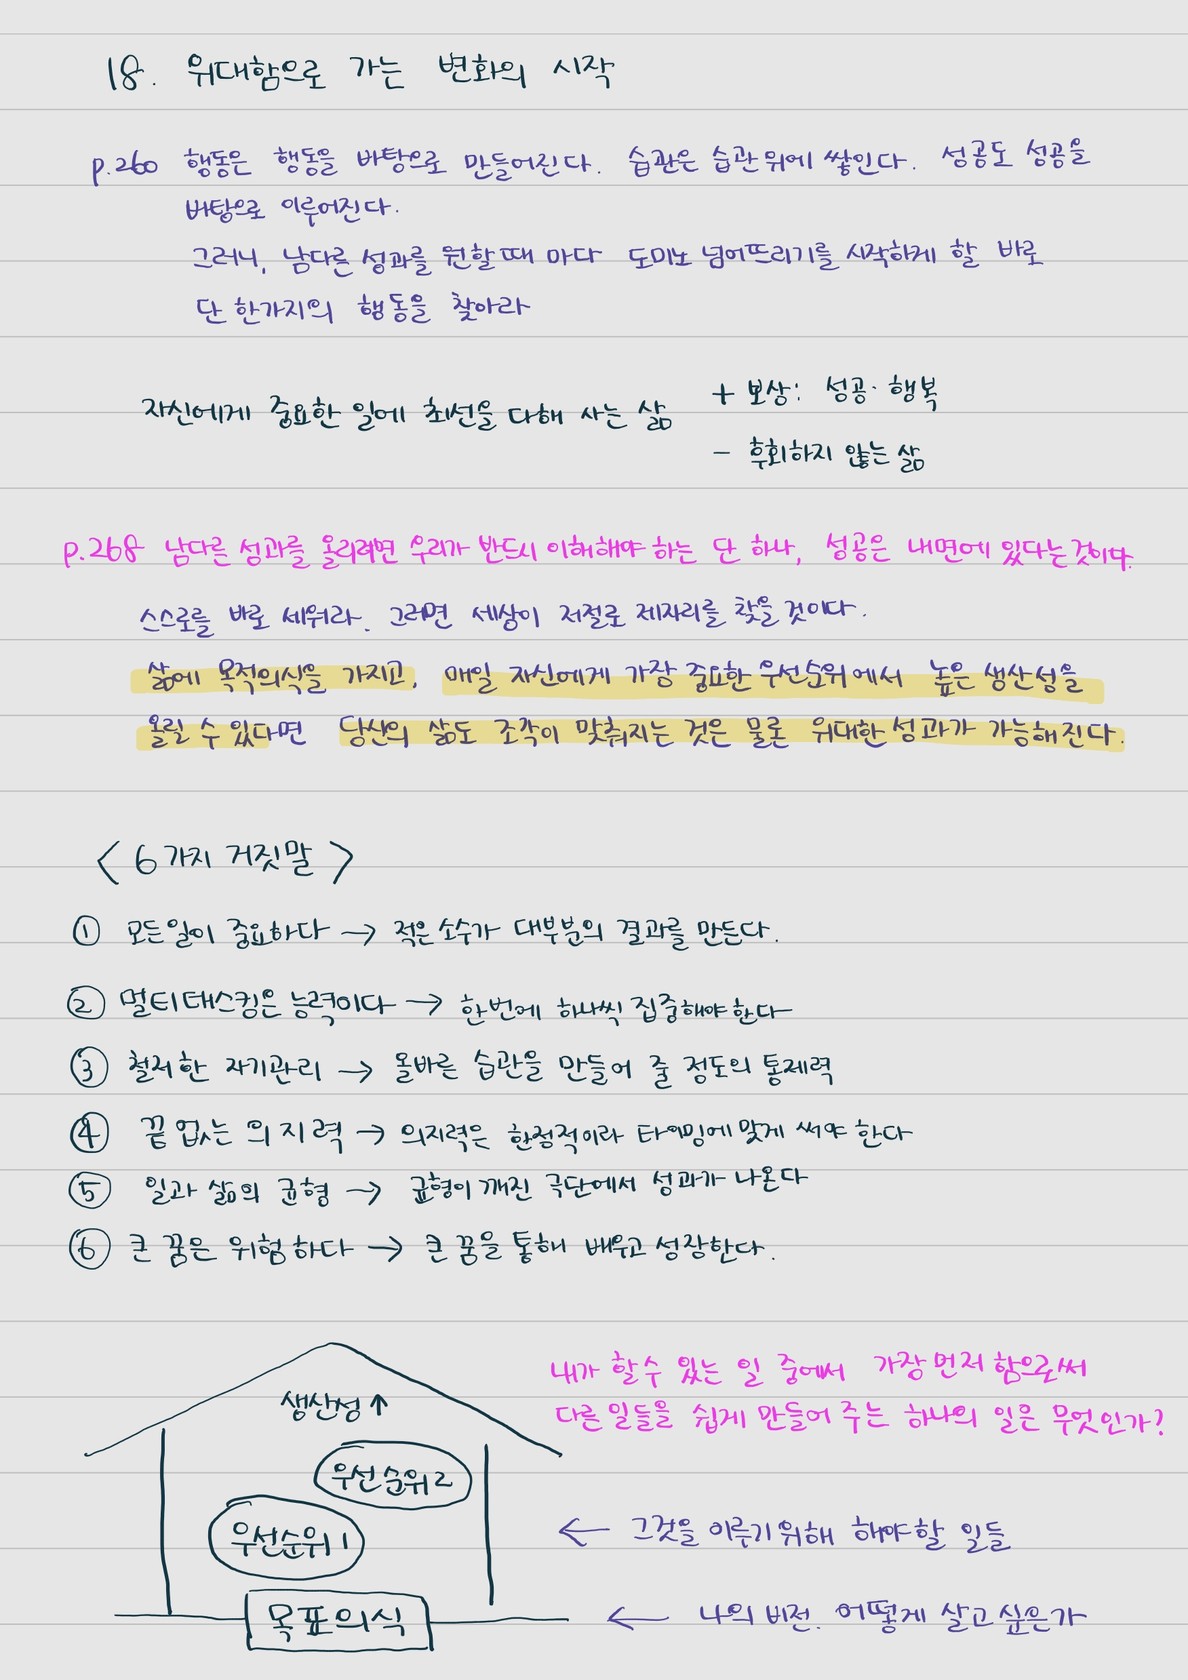 18. 위대함으로 가는 변화의 시작
p.260 행동은 행동을 바탕으로 만들어진다. 습관은 습관 위에 쌓인다. 성공도 성공을
바탕으로 이루어진다.
그러니, 남다른 성과를 원할 때 마다 도미노 넘어뜨리기를 시작하게 할 바로
단 한가지의 행동을 찾아라
자신에게 중요한 일에 최선을 다해 사는 삶
+ 보상: 성공·행복
- 후회하지 않는 삶
p.268 남다른 성과를 올리려면 우리가 반드시 이해해야 하는 단 하나, 성공은 내면에 있다는 것이다.
스스로를 바로 세워라. 그러면 세상이 저절로 제자리를 찾을 것이다.
삶에 목적의식을 가지고, 매일 자신에게 가장 중요한 우선순위에서 높은 생산성을
올릴 수 있다면 당신의 삶도 조각이 맞춰지는 것은 물론 위대한 성과가 가능해진다.
< 6가지 거짓말 >
① 모든일이 중요하다 → 적은 소수가 대부분의 결과를 만든다.
② 멀티태스킹은 능력이다 → 한번에 하나씩 집중해야한다
③ 철저한 자기관리 → 올바른 습관을 만들어 줄 정도의 통제력
④ 끝없는 의지력 → 의지력은 한정적이라 타이밍에 맞게 써야 한다
⑤ 일과 삶의 균형 → 균형이 깨진 극단에서 성과가 나온다
⑥ 큰 꿈은 위험하다 → 큰 꿈을 통해 배우고 성장한다.
내가 할수 있는 일 중에서 가장 먼저 함으로써
다른 일들을 쉽게 만들어 주는 하나의 일은 무엇인가?
생산성 ↑
우선순위 2
우선순위 1
← 그것을 이루기 위해 해야 할 일들
목표의식
← 나의 비전. 어떻게 살고 싶은가